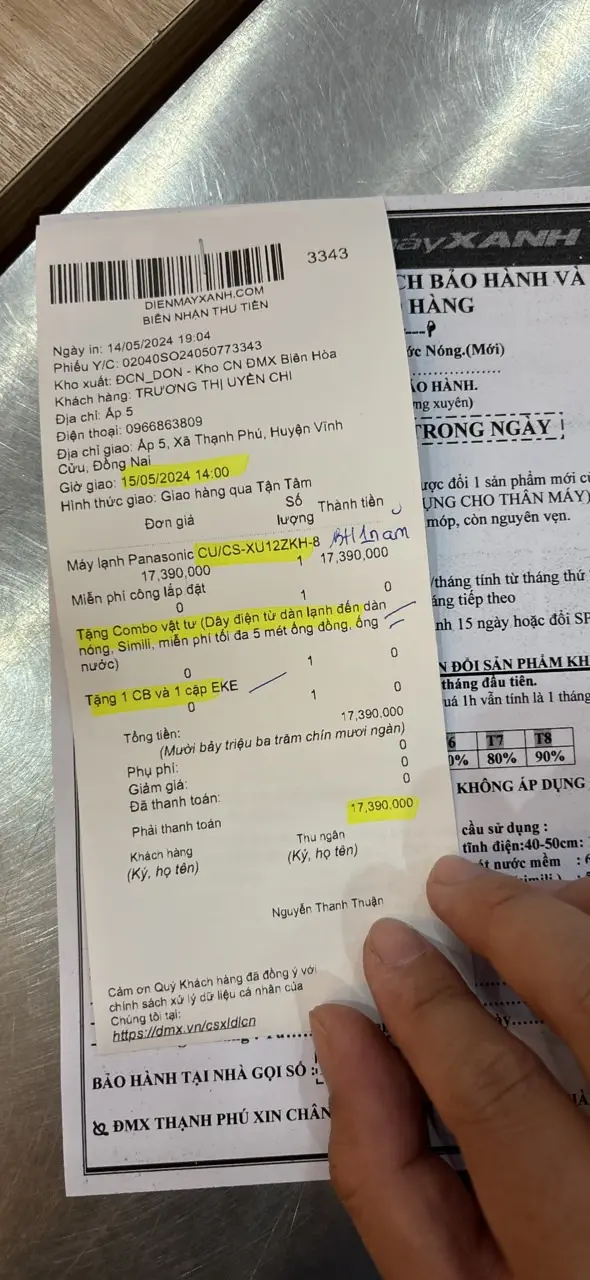 3343
DIENMAYXANH.COM
BIÊN NHẬN THU TIỀN
Ngày in: 14/05/2024 19:04
Phiếu Y/C: 02040SO24050773343
Kho xuất: ĐCN_DON - Kho CN ĐMX Biên Hòa
Khách hàng: TRƯƠNG THỊ UYÊN CHI
Địa chỉ: Ấp 5
Điện thoại: 0966863809
Địa chỉ giao: Ấp 5, Xã Thạnh Phú, Huyện Vĩnh
Cửu, Đồng Nai
Giờ giao: 15/05/2024 14:00
Hình thức giao: Giao hàng qua Tận Tâm
Đơn giá Số lượng Thành tiền
Máy lạnh Panasonic CU/CS-XU12ZKH-8 BH 1 nam
17,390,000 1 17,390,000
Miễn phí công lắp đặt
0 1 0
Tặng Combo vật tư (Dây điện từ dàn lạnh đến dàn
nóng, Simili, miễn phí tối đa 5 mét ống đồng, ống
nước)
0 1 0
Tặng 1 CB và 1 cặp EKE
0 1 0
Tổng tiền: 17,390,000
(Mười bảy triệu ba trăm chín mươi ngàn)
Phụ phí: 0
Giảm giá: 0
Đã thanh toán: 0
Phải thanh toán 17,390,000
Khách hàng Thu ngân
(Ký, họ tên) (Ký, họ tên)
Nguyễn Thanh Thuận
Cảm ơn Quý Khách hàng đã đồng ý với
chính sách xử lý dữ liệu cá nhân của
Chúng tôi tại:
https://dmx.vn/csxldlcn
máyXANH
CH BẢO HÀNH VÀ
HÀNG
ớc Nóng.(Mới)
ẢO HÀNH.
ng xuyên)
TRONG NGÀY
ược đổi 1 sản phẩm mới
ỤNG CHO THÂN MÁY)
móp, còn nguyên vẹn.
/tháng tính từ tháng thứ
áng tiếp theo
nh 15 ngày hoặc đổi SP
N ĐỔI SẢN PHẨM KH
tháng đầu tiên.
uá 1h vẫn tính là 1 tháng
6 T7 T8
0% 80% 90%
KHÔNG ÁP DỤNG
cầu sử dụng :
tĩnh điện:40-50cm:
út nước mềm : 6
(simili)
BẢO HÀNH TẠI NHÀ GỌI SỐ :
ĐMX THẠNH PHÚ XIN CHÂN